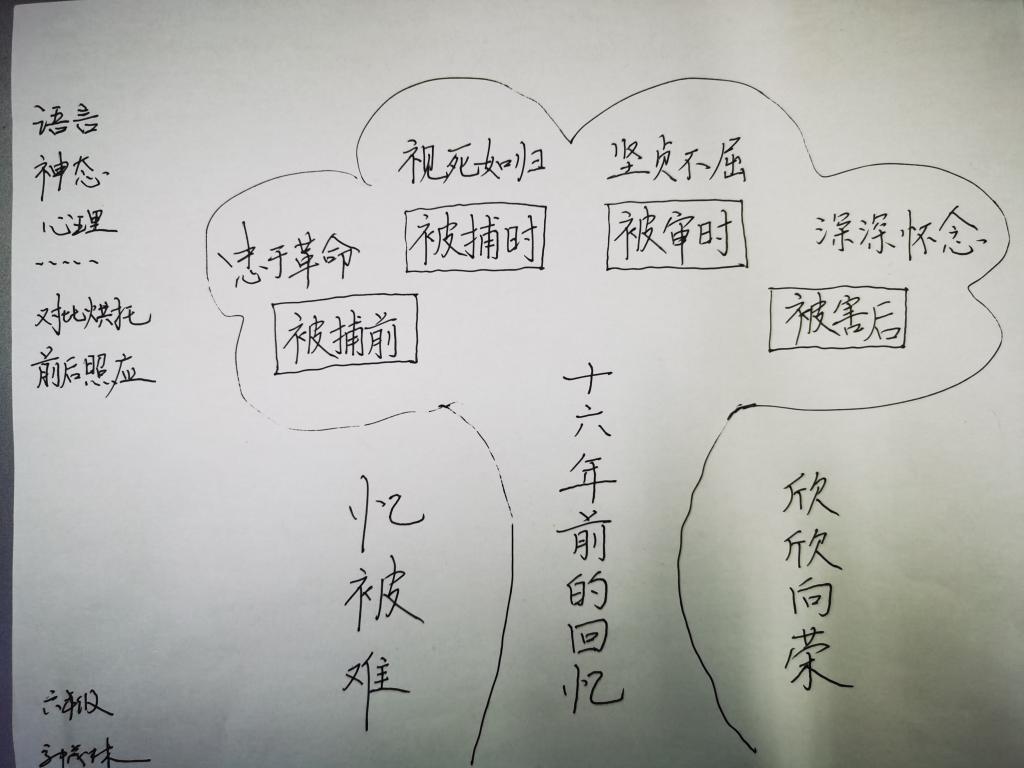 语言
神态
心理
.....
对比烘托
前后照应
忠于革命
被捕前
视死如归
被捕时
坚贞不屈
被审时
深深怀念
被害后
十六年前的回忆
忆被难
欣欣向荣
六年级